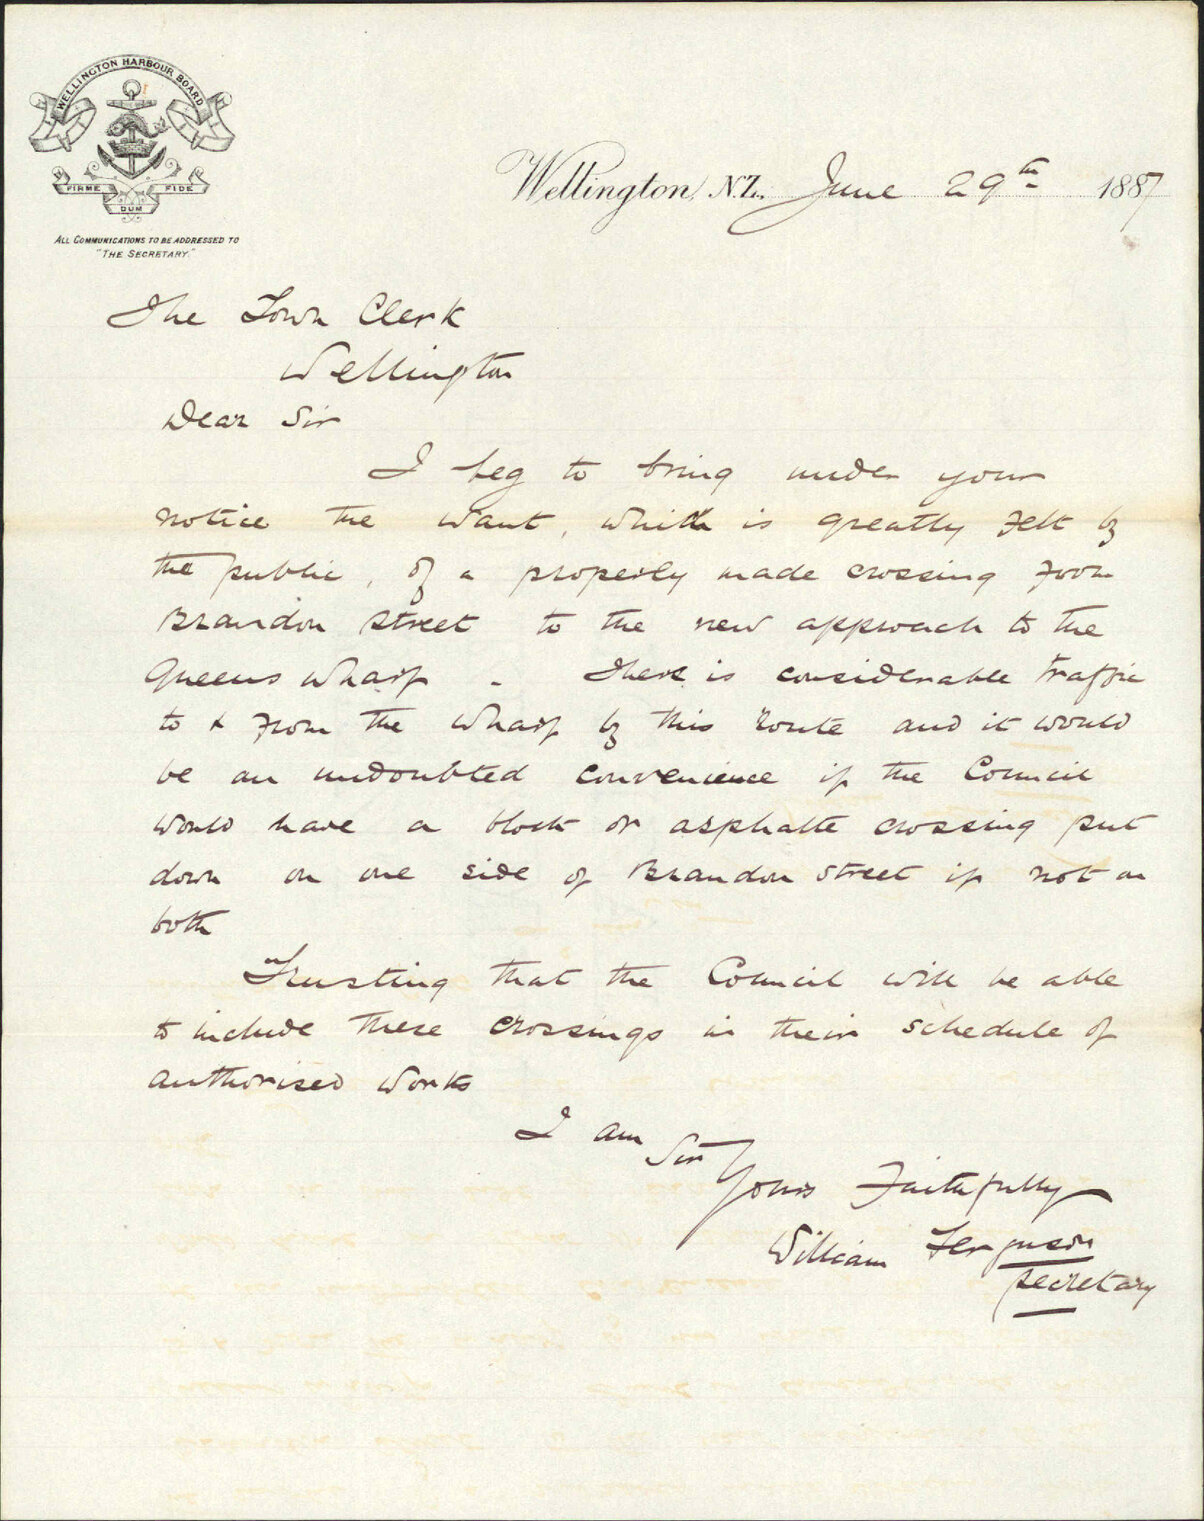 WELLINGTON HARBOUR BOARD
FIRME DUM FIDE
ALL COMMUNICATIONS TO BE ADDRESSED TO
"THE SECRETARY."
Wellington, N.Z., June 29th 1887
The Town Clerk
Wellington
Dear Sir
I beg to bring under your
notice the want, which is greatly felt by
the public, of a properly made crossing from
Brandon Street to the new approach to the
Queens Wharf - There is considerable traffic
to & from the Wharf by this route and it would
be an undoubted convenience if the Council
would have a block or asphalte crossing put
down on one side of Brandon Street if not on
both
Trusting that the Council will be able
to include these crossings in their schedule of
authorised works
I am
Sir
Yours Faithfully
William Ferguson
Secretary